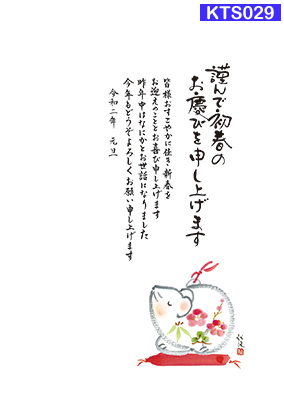 KTS029
謹んで初春の
お慶びを申し上げます
皆様おすこやかに佳き新春を
お迎えのこととお喜び申し上げます
昨年中はなにかとお世話になりました
今年もどうぞよろしくお願い申し上げます
令和二年 元旦